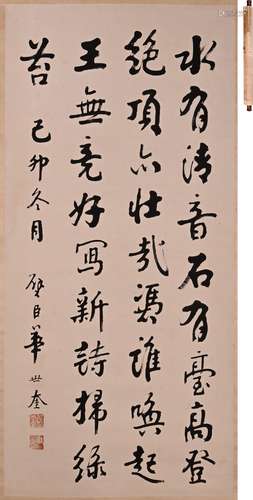 水有清音石有臺高登
絕頂亦壯哉憑誰喚起
王無竟好寫新詩掃綠
苔 己卯冬月 璧臣華世奎